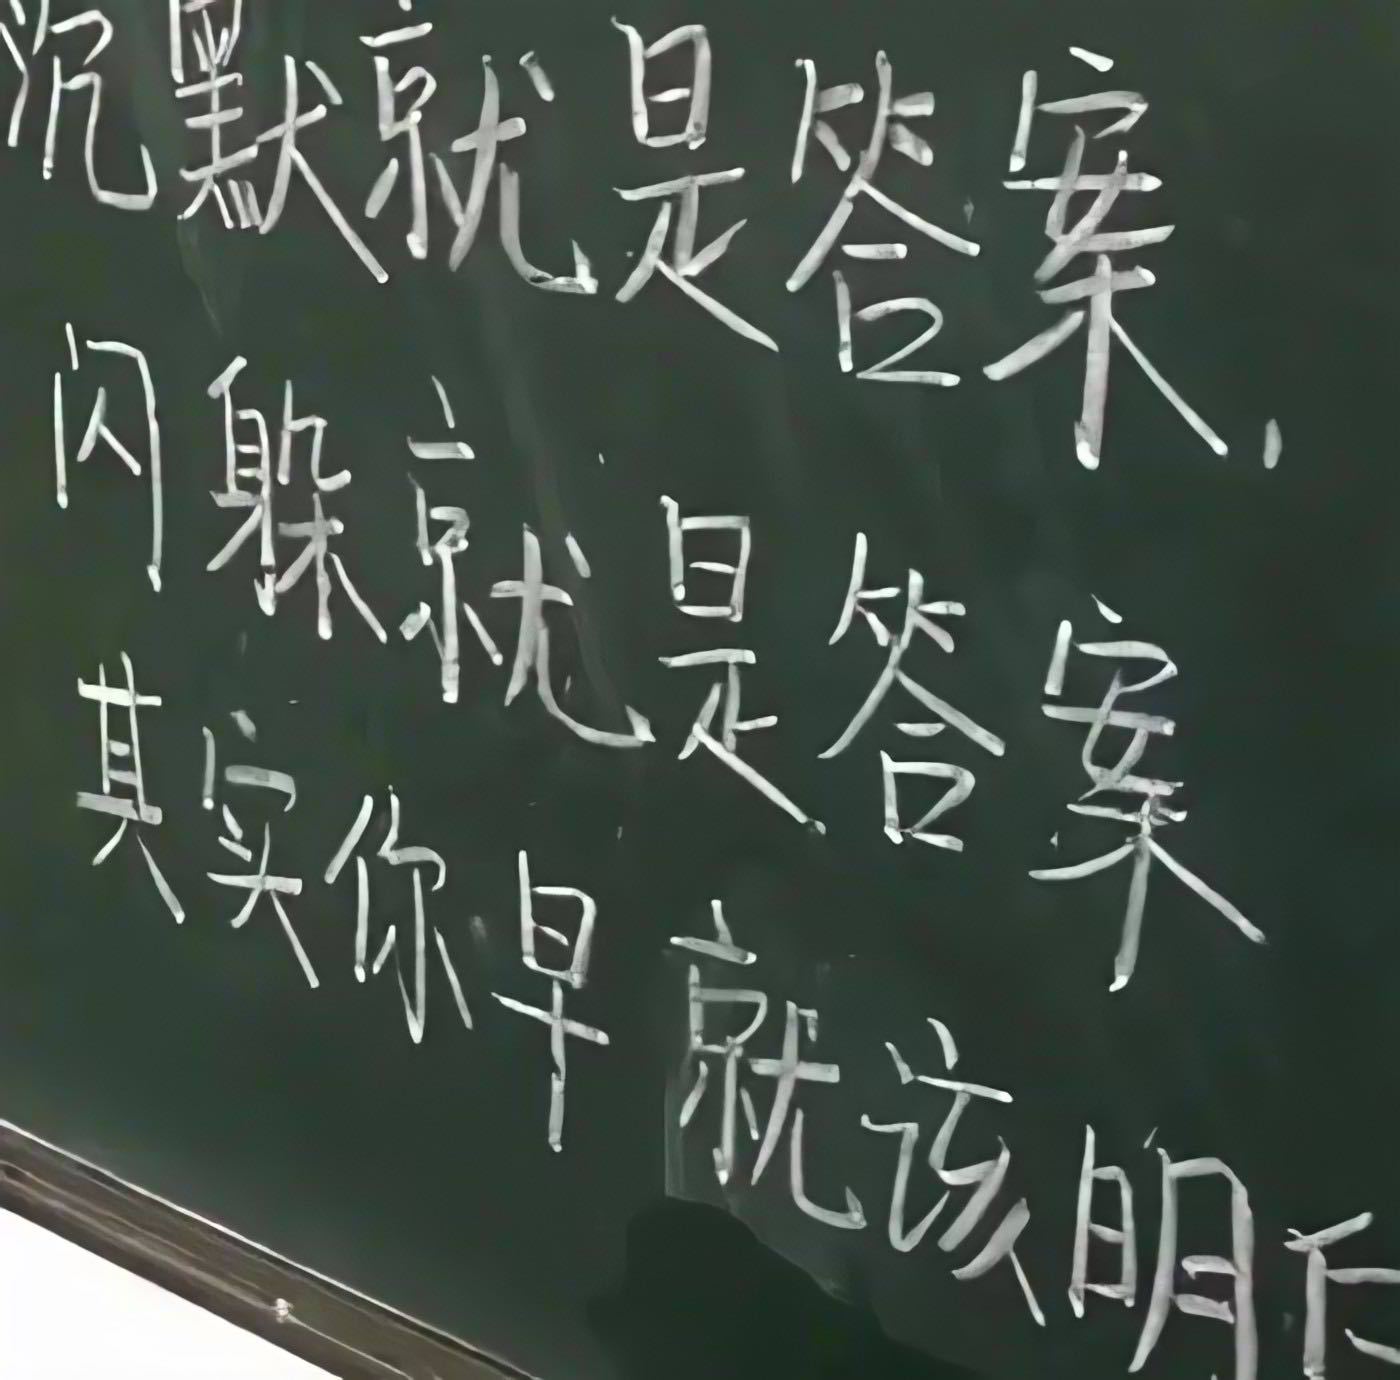 沉默就是答案.
闪躲就是答案
其实你早就该明